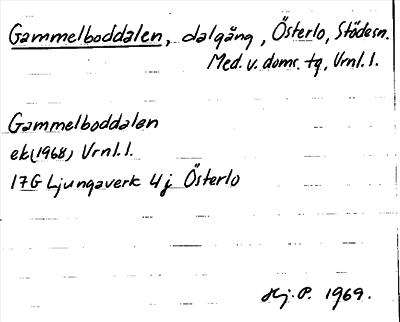 Gammelboddalen, dalgång, Österlo, Stödesn.
Med. v. domr. tg, Vrnl. l.
Gammelboddalen
ek (1968) Vrnl. l.
17G Ljungaverk 4j Österlo
Hj. P. 1969.